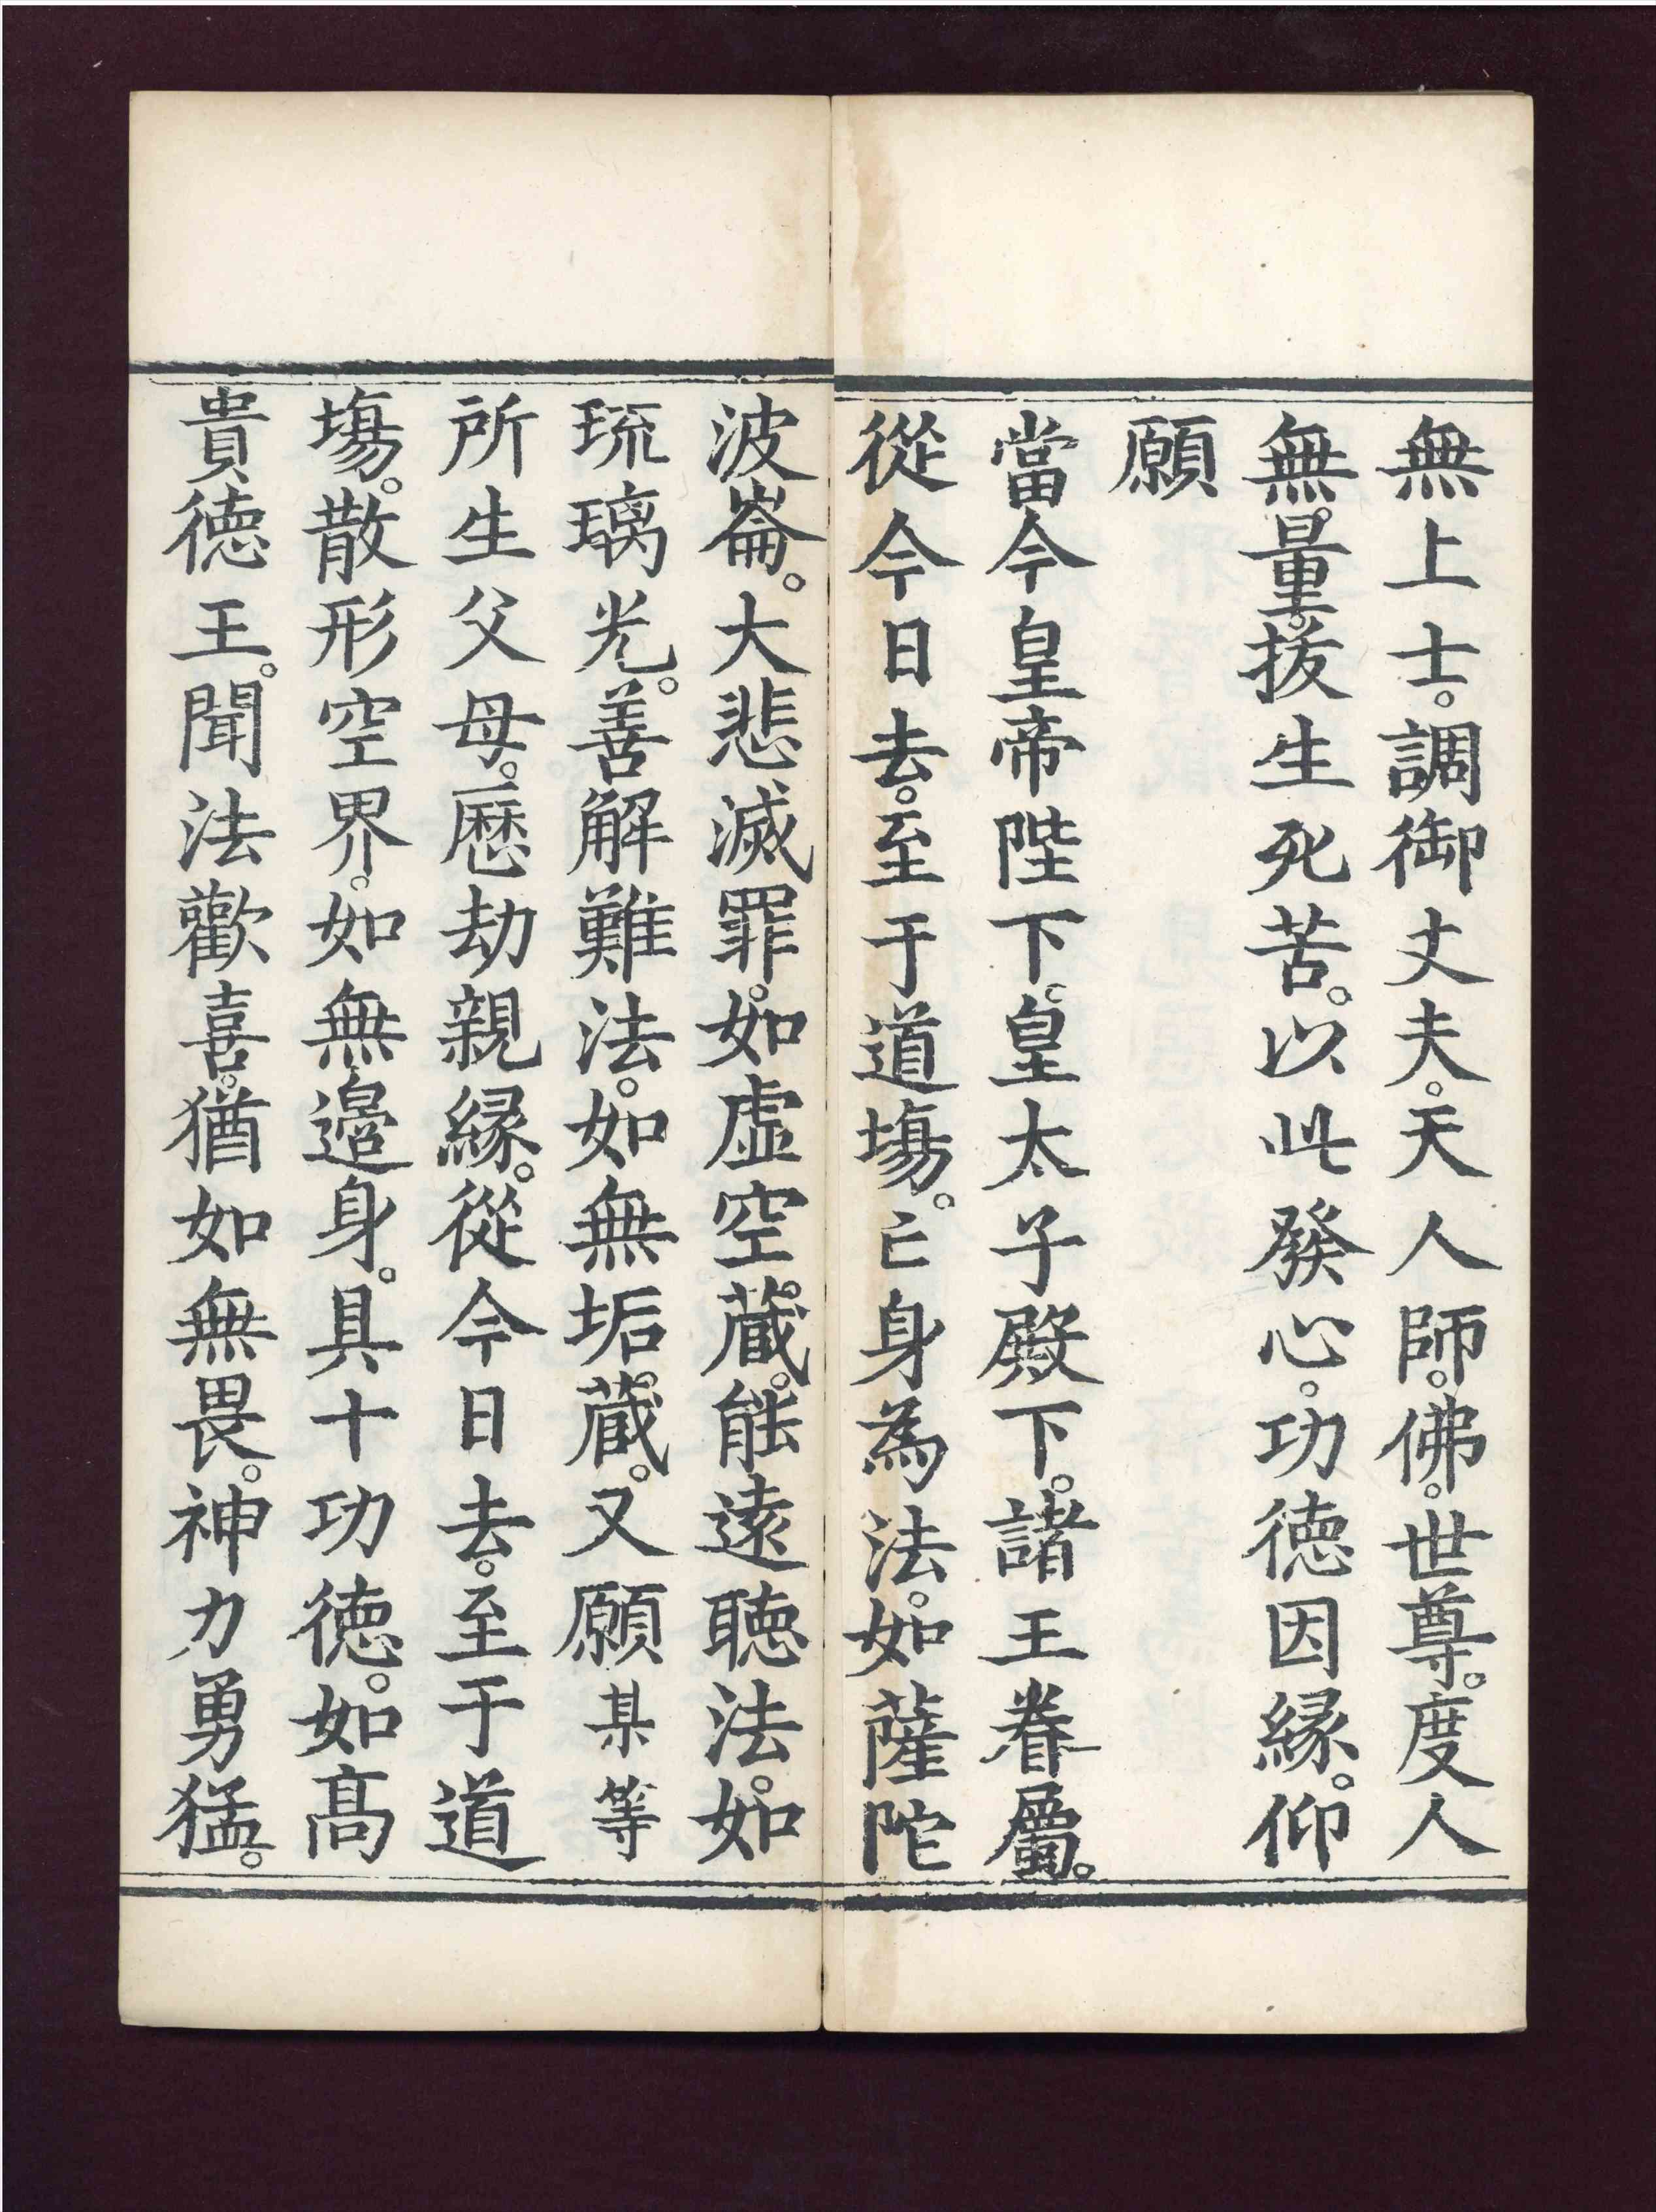 無上士。調御丈夫。天人師。佛。世尊。度人
無。量。拔生死苦。以此發心。功德因緣。仰
願
當今皇帝陛下。皇太子殿下。諸王眷屬。
從今日去。至于道場。亡身為法。如薩陀
波崙。大悲滅罪。如虛空。藏。能遠聽法。如
琉璃光。善解難法。如無垢。藏。又願某等
所生父母。歷劫親緣。從今日去。至于道
場。散形空界。如無邊身。具十功德。如高
貴德王。聞法歡喜。猶如無畏。神力勇猛。